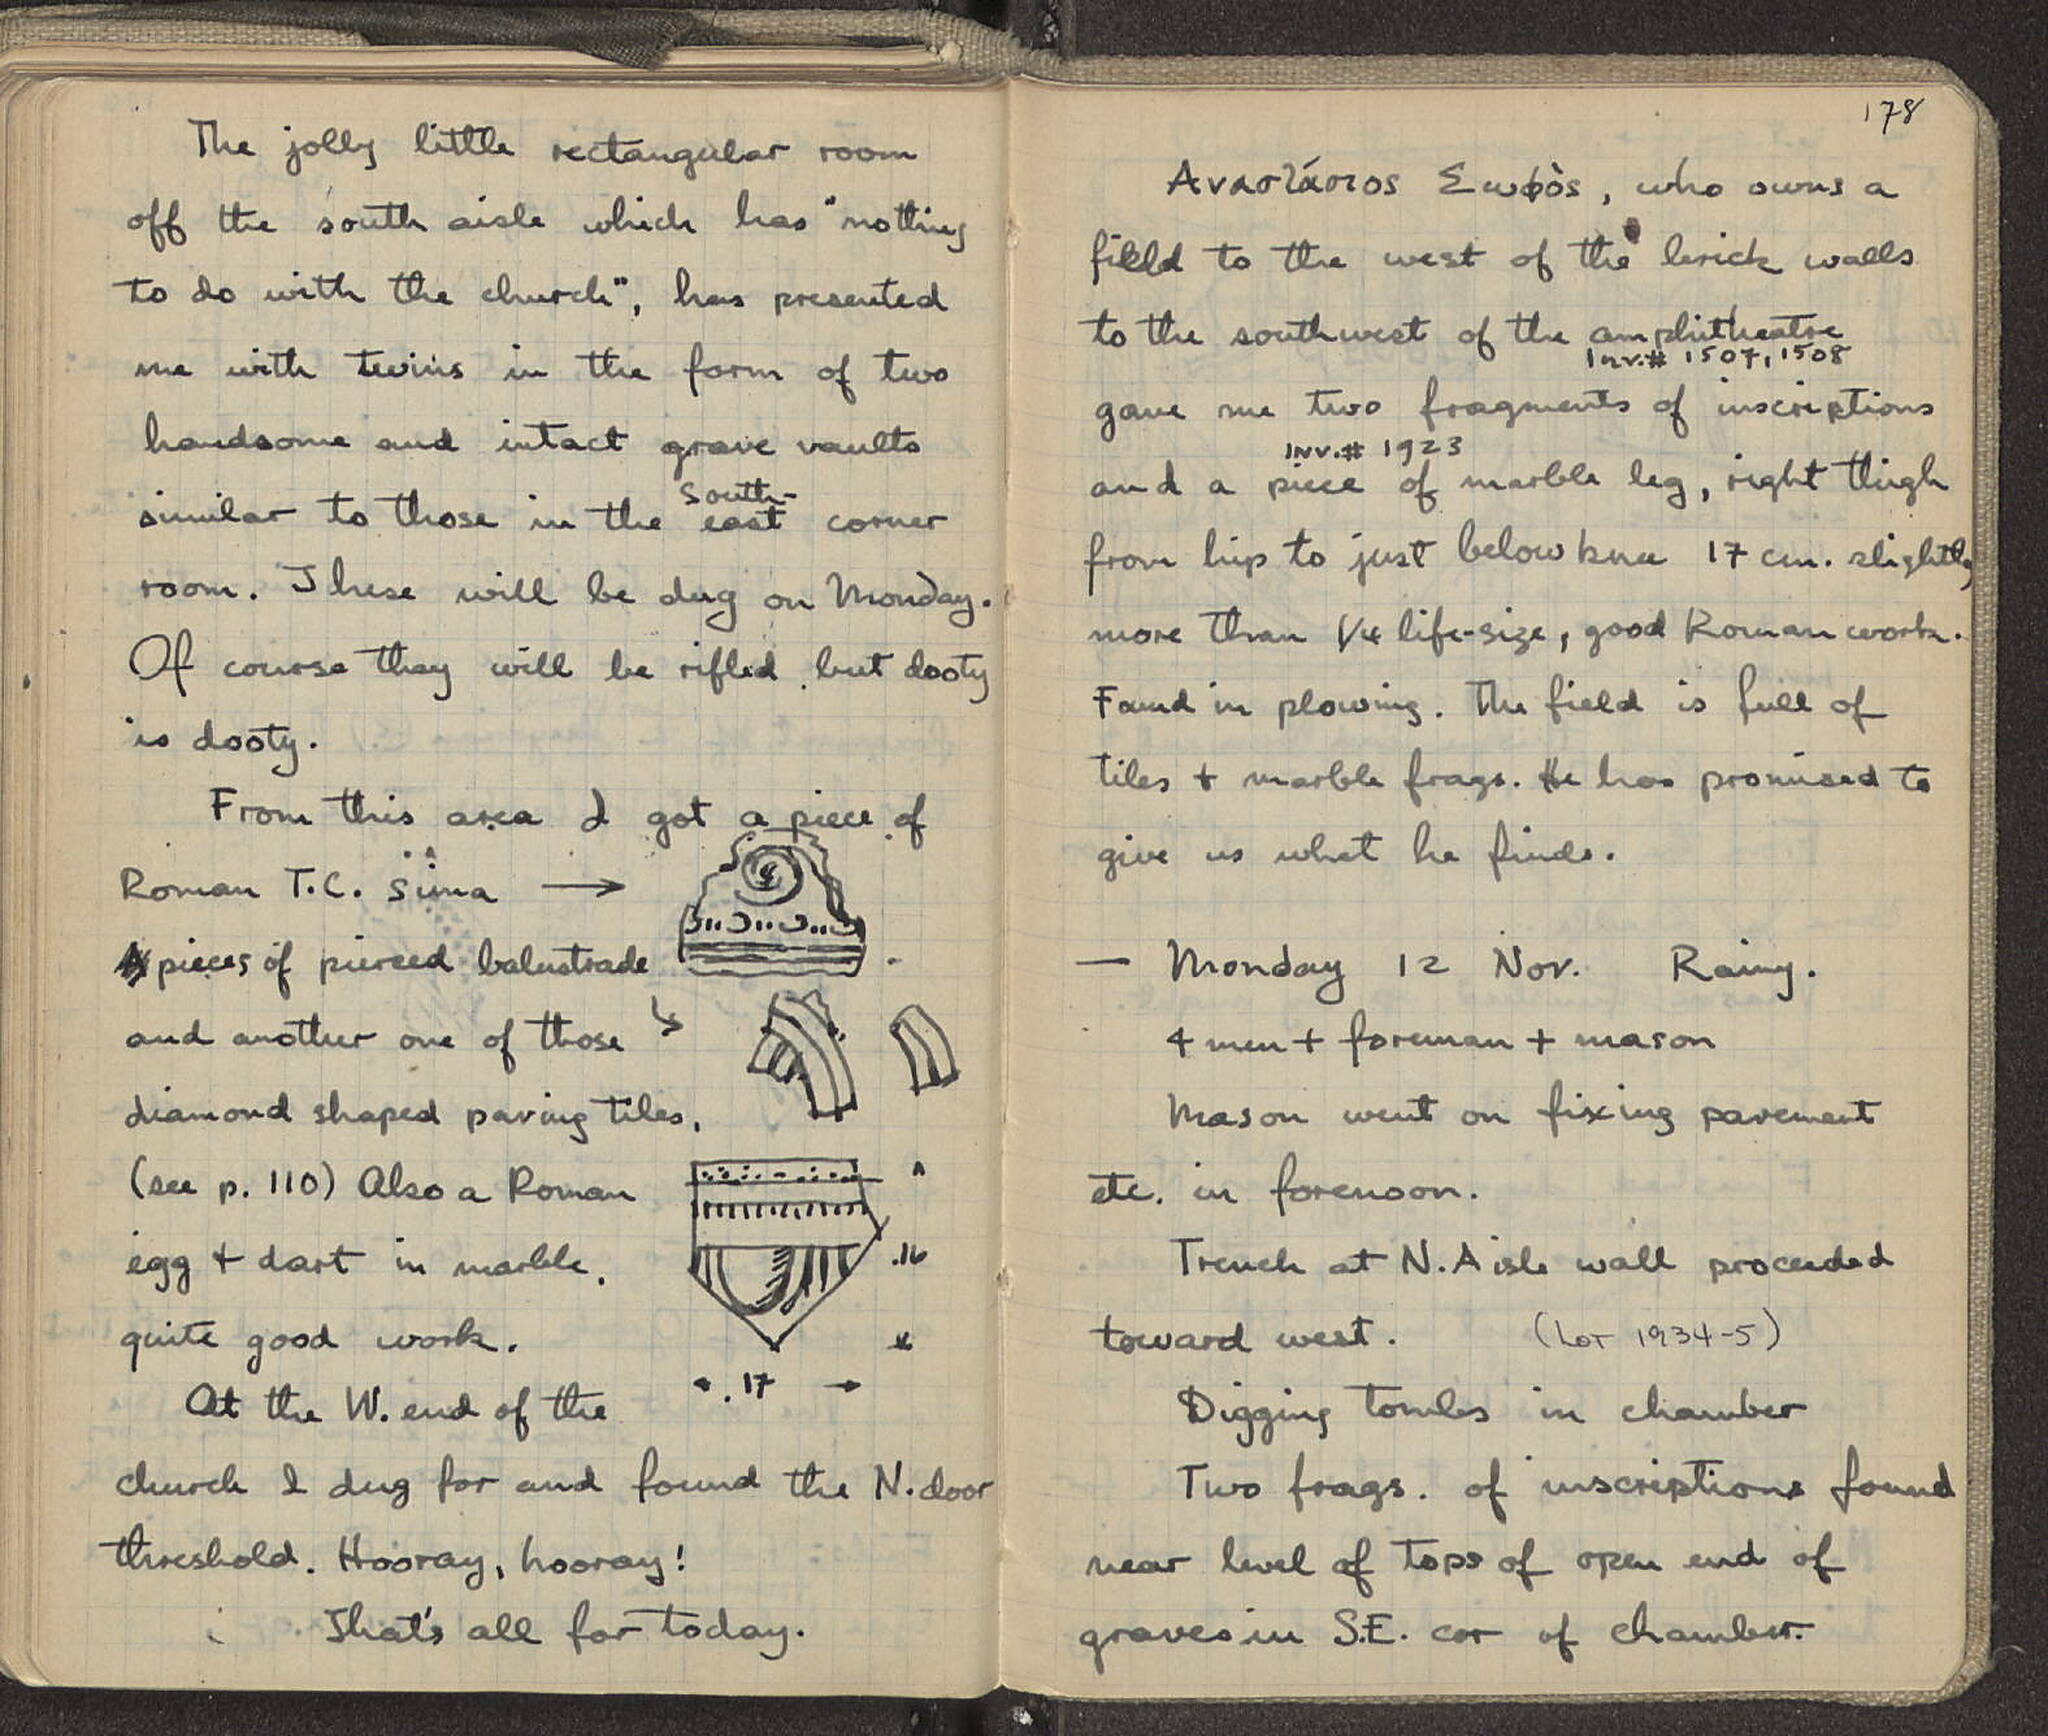 The jolly little rectangular room
off the south aisle which has "nothing
to do with the church", has presented
me with twins in the form of two
handsome and intact grave vaults
similar to those in the south-east corner
room. These will be dug on Monday.
Of course they will be rifled but dooty
is dooty.
From this area I got a piece of
Roman T.C. sima →
pieces of pierced balustrade
and another one of those
diamond shaped paving tiles,
(see p. 110) Also a Roman
egg + dart in marble,
.16
quite good work.
.17
At the W. end of the
church I dug for and found the N. door
threshold. Hooray, hooray!
That's all for today.
178
Αναστάσιος Σωφὸς, who owns a
field to the west of the brick walls
to the southwest of the amphitheatre
Inv.# 1507, 1508
gave me two fragments of inscriptions
Inv.# 1923
and a piece of marble leg, right thigh
from hip to just below knee 17 cm. slightly
more than 1/4 life-size, good Roman work.
Found in plowing. The field is full of
tiles + marble frags. He has promised to
give us what he finds.
— Monday 12 Nov. Rainy.
4 men + foreman + mason
Mason went on fixing pavement
etc. in forenoon.
Trench at N. Aisle wall proceeded
toward west. (Lot 1934-5)
Digging tombs in chamber
Two frags. of inscriptions found
near level of tops of open end of
graves in S.E. cor of chamber.